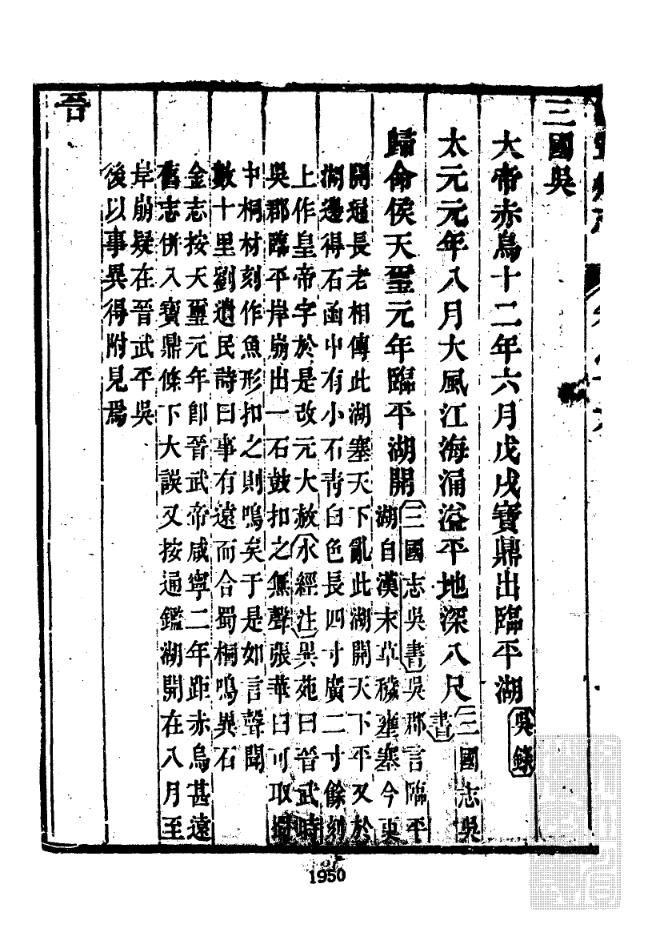 三國吳
大帝赤烏十二年六月戊戌寶鼎出臨平湖吳錄
太元元年八月大風江海涌溢平地深八尺三國志吳
書
歸命侯天璽元年臨平湖開三國志吳書吳郡言臨平
湖自漢末草穢壅塞今更
開通長老相傳此湖塞天下亂此湖開天下平又於
湖邊得石函中有小石青白色長四寸廣二寸餘刻
上作皇帝字於是改元大赦水經注異苑曰晉武時
吳郡臨平岸崩出一石鼓扣之無聲張華曰可取蜀
中桐材刻作魚形扣之則鳴矣于是如言聲聞
數十里劉遺民詩曰事有遠而合蜀桐鳴異石
金志按天璽元年卽晉武帝咸寧二年距赤烏甚遠
舊志併入寶鼎條下大誤又按通鑑湖開在八月至
岸崩疑在晉武平吳
後以事異得附見焉
晉
1950